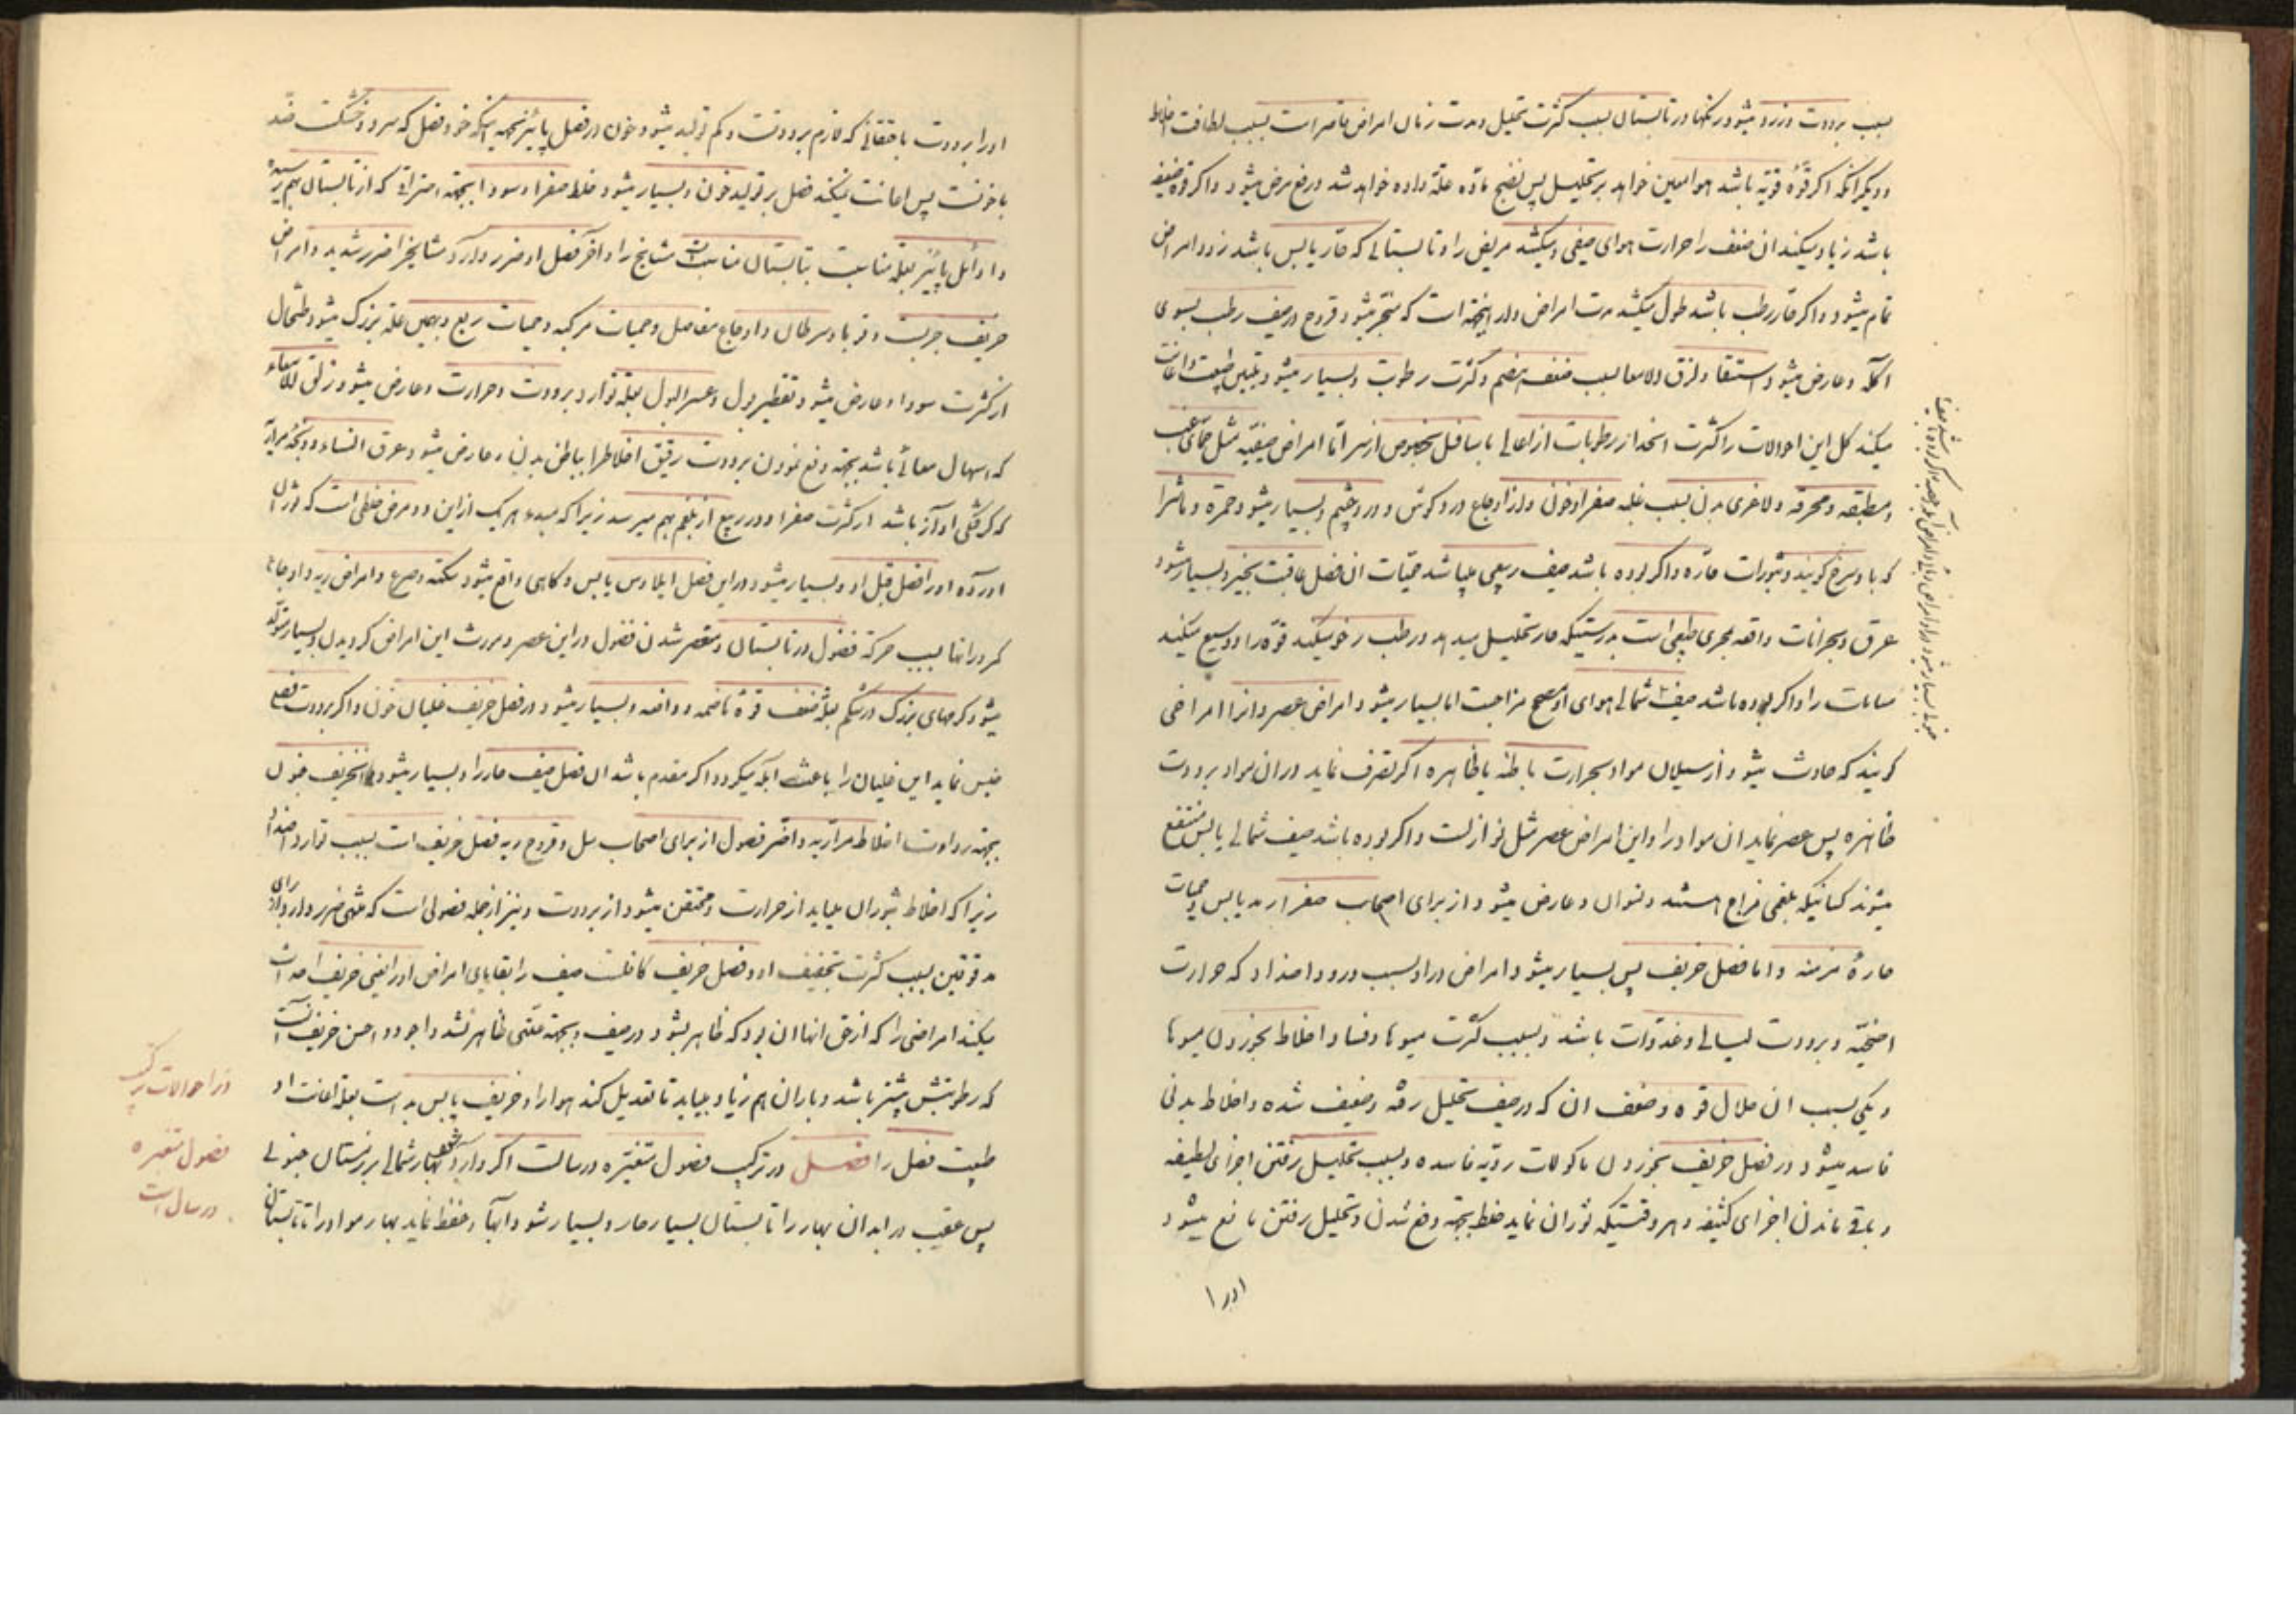 بسبب برودت و زرد میشود رنگها و در تابستان بسبب کثرت تحلیل و مدت زمان امراض قاصر است بسبب لطافت اخلاط
و دیگر آنکه اگر قوه قویه باشد هوا معین خواهد بر تحلیل پس نضج ماده علة داده خواهد شد و رفع مرض میشود و اگر قوه ضعیفه
باشد زیاد میکند ان ضعف را حرارت هوای صیفی و میکشد مریض را و تابستانی که حار یابس باشد زود امراض
تمام میشود و اگر حار رطب باشد طول میکشد مدت امراض و از اینجهة است که منجر میشود قروح در صیف رطب بسوی
آکله و عارض میشود استسقا و زلق الامعا بسبب ضعف هضم و کثرت رطوبت و بسیار میشود بتلیین طبیعت و اعانت
میکند کل این احوالات را کثرت انحدار رطوبات از اعالی باسافل بخصوص از سر اما امراض صیفیه مثل حمای غب
و مطبقه و محرقه و لاغری بدن بسبب غلبه صفرا و خون و از اوجاع درد گوش و درد چشم و بسیار میشود حمره و ماشرا
که باد سرخ گویند و بثورات حاره و اگر بوده باشد صیف ربیعی میباشد حمیات ان فصل عاقبت بخیر و بسیار میشود
عرق و بحرانات واقعه بمجری طبیعی است بدرستیکه حار تحلیل میدهد و رطب رخو میکند قوه را و وسیع میکند
مسامات را و اگر بوده باشد صیف شمالی هوای او صحیح مزاجست اما بسیار میشود امراض عصر و انرا امراضی
گویند که حادث میشود از سیلان مواد بحرارت باطنه یا ظاهره اگر تصرف نماید در ان مواد برودت
ظاهره پس عصر نماید ان مواد را و این امراض عصر مثل نوازلست و اگر بوده باشد صیف شمالی یابس منتفع
میشوند کسانیکه بلغمی مزاج هستند و نسوان و عارض میشود از برای اصحاب صفرا رمد یابس و حمیات
حارهٔ مزمنه و اما فصل خریف پس بسیار میشود امراض در او بسبب ورود اضداد که حرارت
اضحیّه و برودت لیالی و غدوات باشد و بسبب کثرت میوها و فساد اخلاط بخوردن میوها
و یکی بسبب ان ملال قوه و ضعف ان که در صیف تحلیل رفته و ضعیف شده و اخلاط بدنی
فاسد میشود در فصل خریف بخوردن ماکولات ردیه فاسده و بسبب تحلیل رفتن اجزای لطیفه
و باقی ماندن اجزای کثیفه و هر وقتیکه ثوران نماید خلط بجهة دفع شدن و تحلیل رفتن مانع میشود
او را
او را برودت باحتقانی که لازم برودتست و کم تولید میشود خون در فصل پائیز بجهة اینکه خود فصل که سرد و خشکست ضد
با خونست پس اعانت نمیکند فصل بر تولید خون و بسیار میشود خلط صفرا و سودا بجهة احتراقی که از تابستان بهم رسیده
و اوائل پائیز بعلة مناسبت بتابستان مناسبست مشایخ را و آخر فصل او ضرر دارد مشایخرا ضرر شدید و امراض
خریف جربست و قوبا و سرطان و اوجاع مفاصل و حمیات مرکبه و حمیات ربع و بهمین علة بزرگ میشود طحال
از کثرت سودا و عارض میشود تقطیر بول و عسر البول بعلة توارد برودت و حرارت و عارض میشود زلق الامعاء
که اسهال معائی باشد بجهة دفع نمودن برودت رقیق اخلاط را بباطن بدن و عارض میشود عرق النساء و ذبحهٔ مراری
که گرفتگی آواز باشد از کثرت صفرا و در ربیع از بلغم بهم میرسد زیرا که مبدء هر یک از این دو مرض خلطی است که ثوران
آورده او را فصل قبل او و بسیار میشود در این فصل ایلاوس یابس و گاهی واقع میشود سکته و صرع و امراض ریه و اوجاع
کمر و رانها بسبب حرکة فضول در تابستان و منعصر شدن فضول در این عصر و مورث این امراض گردیدن و بسیار متولد
میشود کرمهای بزرگ در شکم بعلة ضعف قوهٔ هاضمه و دافعه و بسیار میشود در فصل خریف غلیان خون و اگر برودت فصل
حبس نماید این غلیان را باعث آبله میگردد و اگر مقدم باشد ان فصل صیف حار را و بسیار میشود در خریف جنون
بجهة ردائت اخلاط مراریه و اضر فصول از برای اصحاب سل و قروح ریه فصل خریف است بسبب توارد اضداد
زیرا که اخلاط ثوران مییابد از حرارت و محتقن میشود از برودت و نیز از جمله فصولی است که منتهی ضرر دارد برای
مدقوقین بسبب کثرت تجفیف او و فصل خریف کافلست صیف را بقایای امراض او را یعنی خریف احداث
میکند امراضی را که از حق انها ان بود که ظاهر بشود در صیف و بجهة علتی ظاهر نشد و اجود و احسن خریف آنست
که رطوبتش بیشتر باشد و باران هم زیاد بیاید تا تعدیل کند هوا را و خریف یابس بد است بعلة اعانت او
طبیعت فصل را فصل در ترکیب فصول متغیره در سالست اگر وارد شود بهار شمالی بر زمستان جنوبی
پس عقیب دراید ان بهار را تابستان بسیار حار و بسیار شود ابها و حفظ نماید بهار مواد را تا تابستان
در احوالات ترکیب
فصول متغیره
در سال است